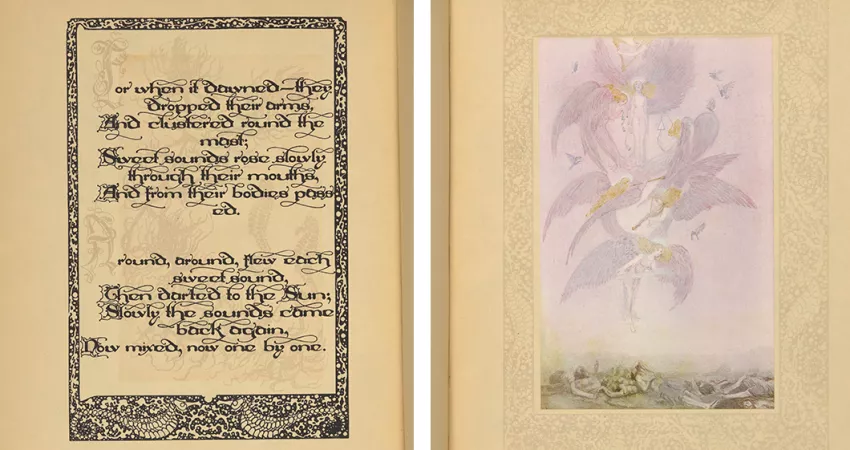 For when it dawned—they
dropped their arms,
And clustered round the
mast;
Sweet sounds rose slowly
through their mouths,
And from their bodies pass
ed.
Around, around, flew each
sweet sound,
Then darted to the Sun;
Slowly the sounds came
back again,
Now mixed, now one by one.